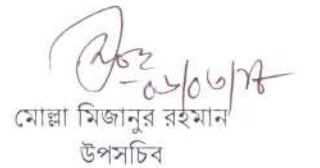 ০৬/০৩/১৮
মোল্লা মিজানুর রহমান
উপসচিব